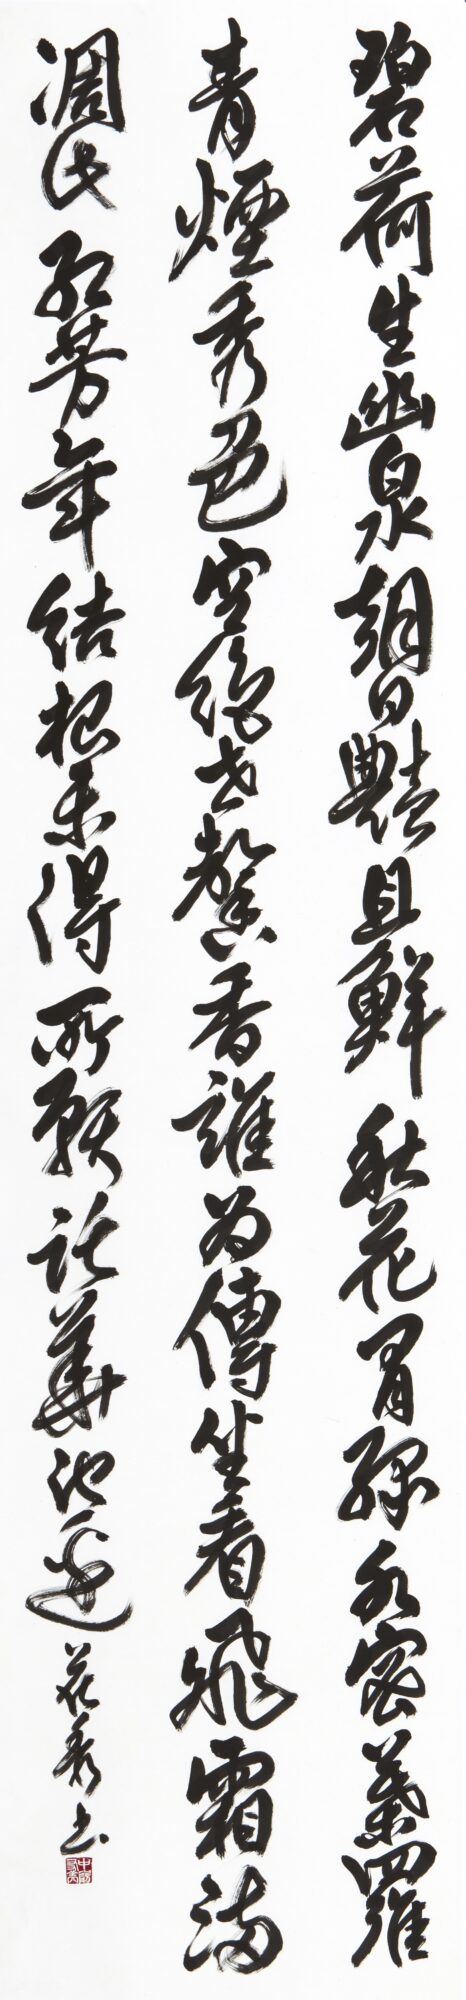 碧荷生幽泉朝日艶且鮮秋花冒緑水密葉羅
青煙秀色空絶世馨香誰為傳坐看飛霜満
凋此紅芳年結根未得所願託華池邊 花秀書